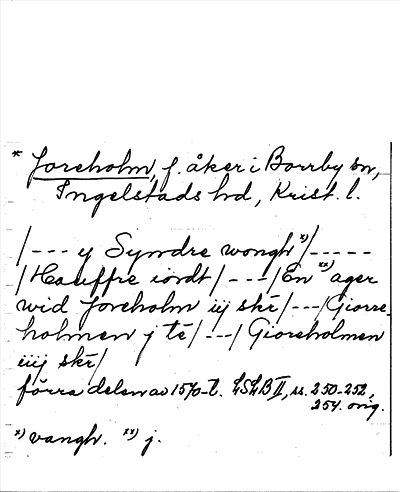 * Joreholm, f. åker i Borrby sn,
Ingelstads hd, Krist. l.
/--- y Syndre wongh x)/-----
/Hauffre iordt/---/En xx) ager
wid Joreholm iij skr/---/Giorre-
holmen j té/---/Gioreholmen
iiij skr/
förra delen av 1570-t. LSLB II, ss. 250-252,
254. orig.
x) vangh. xx) j.